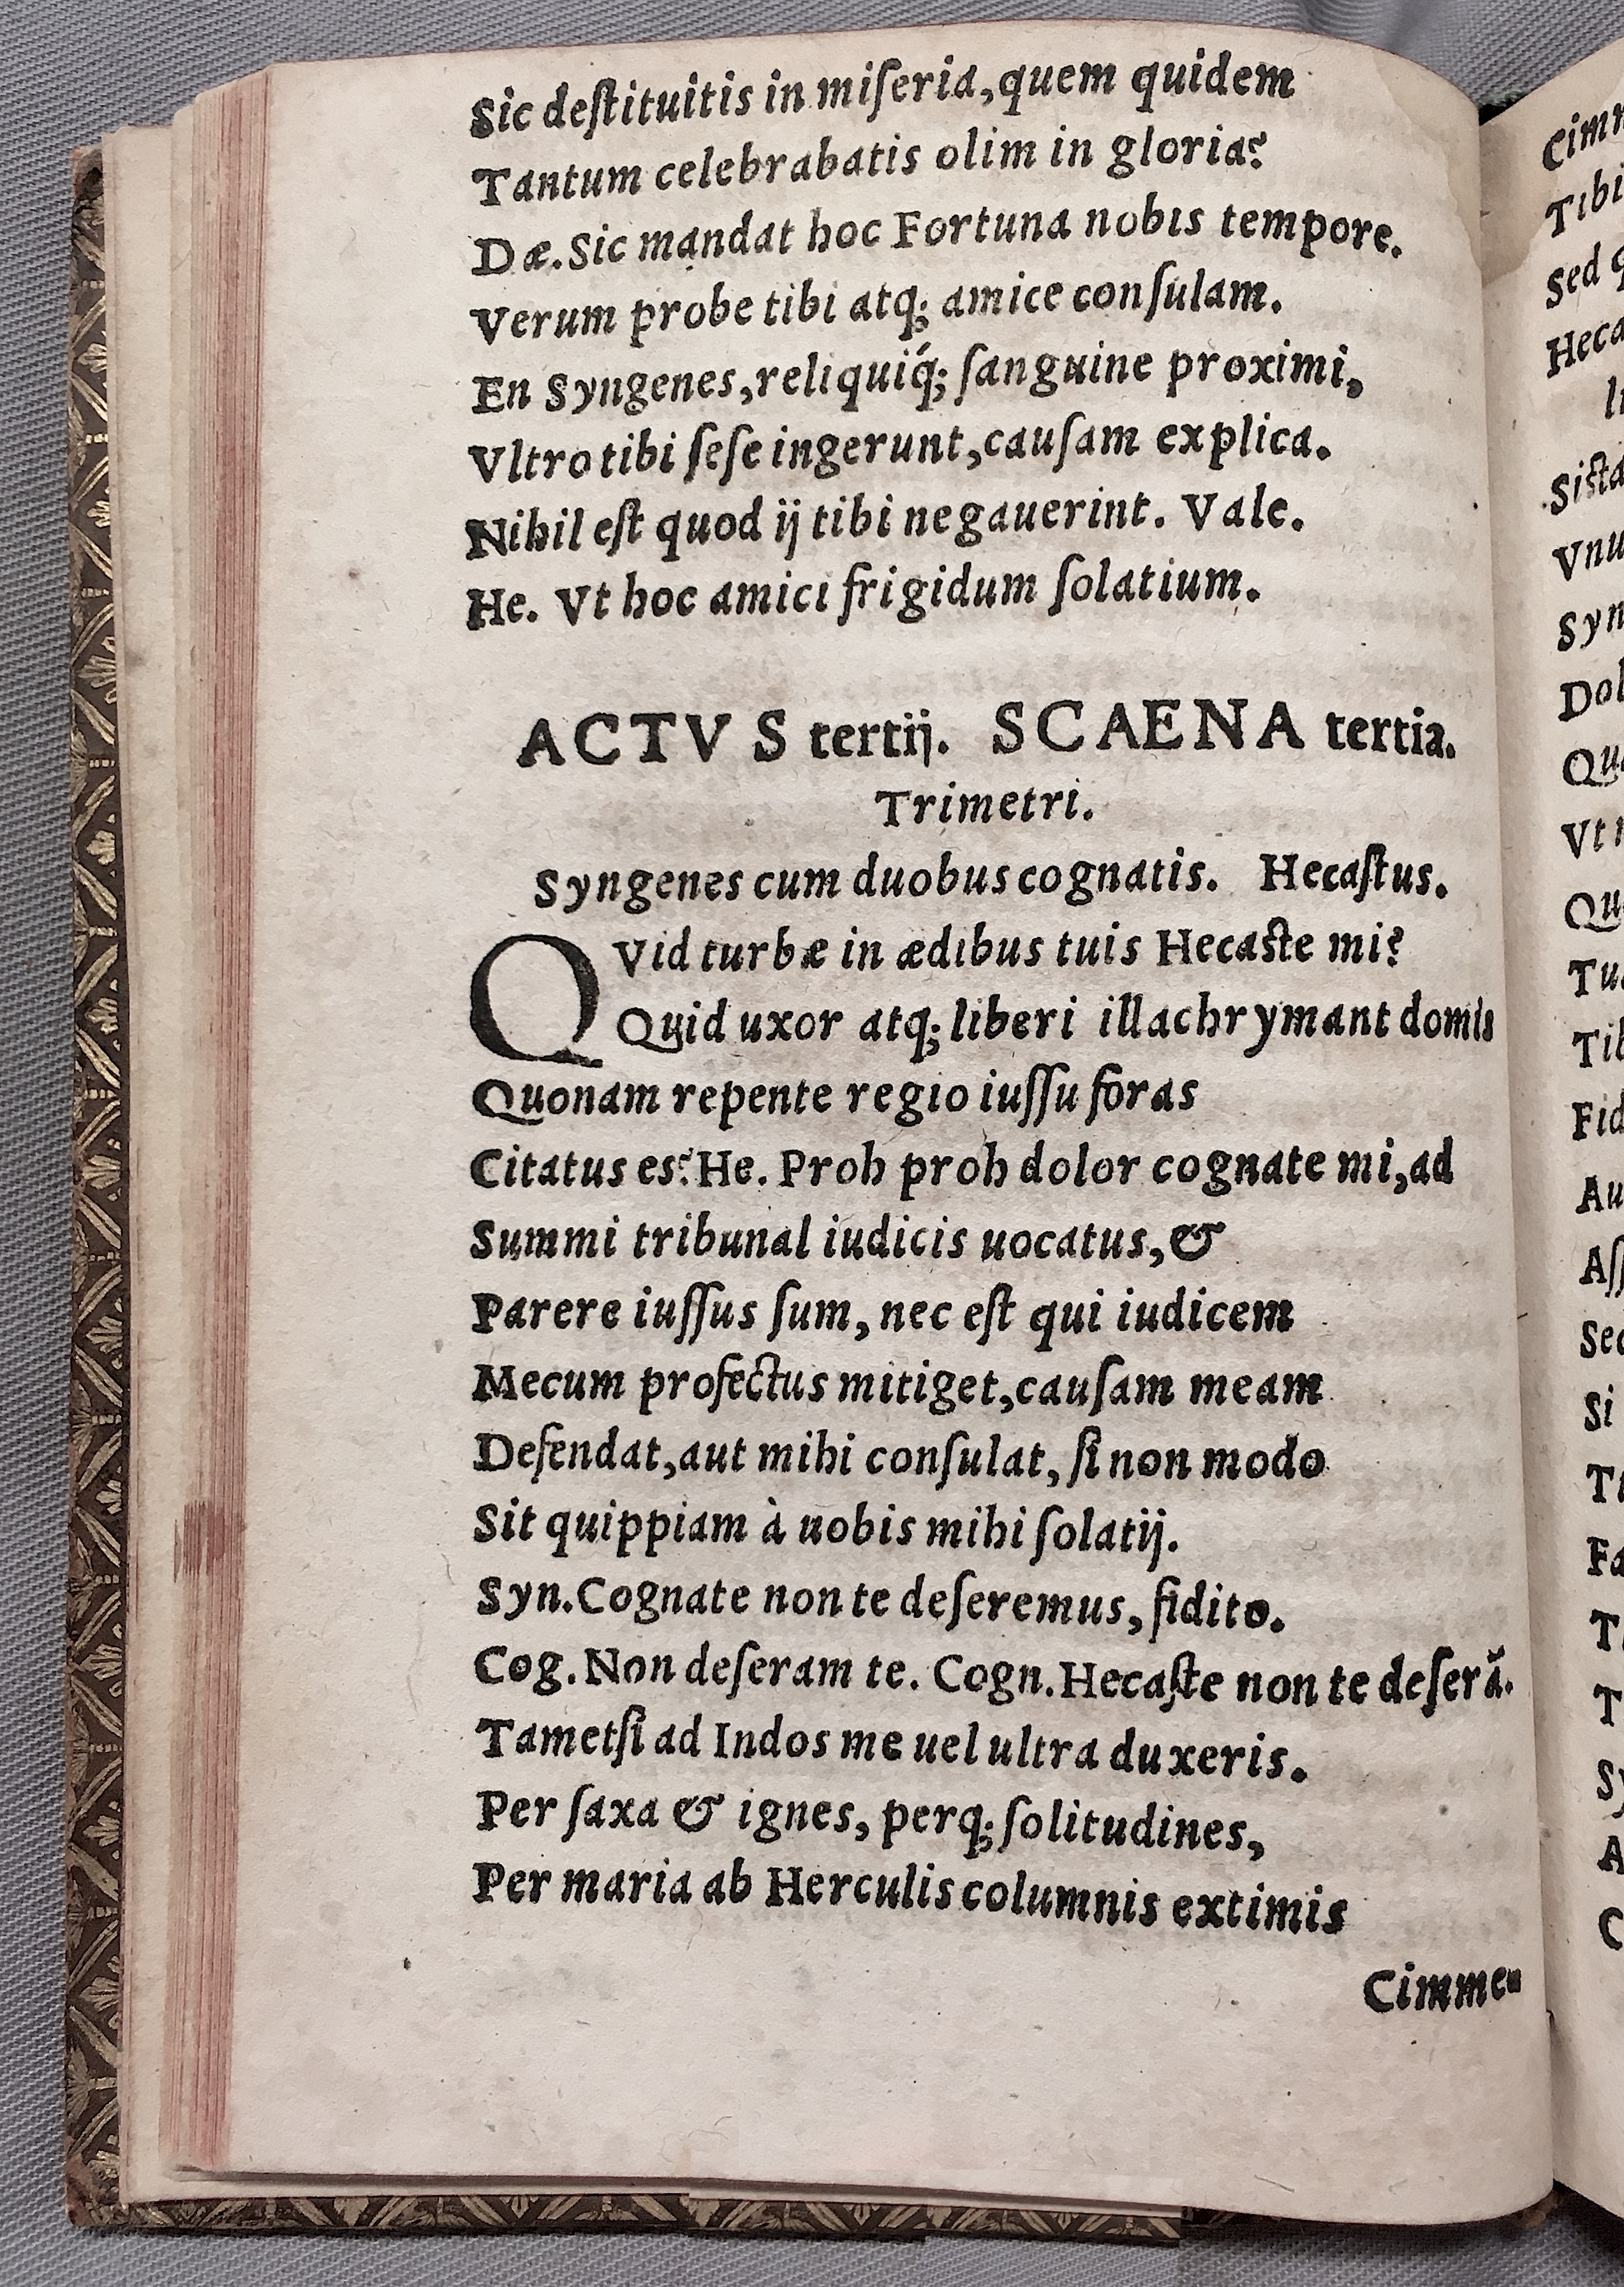 Sic deſtituitis in miſeria, quem quidem
Tantum celebrabatis olim in gloria?
Dæ. Sic mandat hoc Fortuna nobis tempore.
Verum probe tibi atq; amice conſulam.
En Syngenes, reliquiq́; ſanguine proximi,
Vltro tibi ſeſe ingerunt, cauſam explica.
Nihil eſt quod ij tibi negauerint. Vale.
He. Vt hoc amici frigidum ſolatium.
ACTVS tertij. SCAENA tertia.
Trimetri.
Syngenes cum duobus cognatis. Hecaſtus.
QVid turbæ in ædibus tuis Hecaſte mi?
Quid uxor atq; liberi illachrymant domi?
Quonam repente regio iuſſu foras
Citatus es? He. Proh proh dolor cognate mi, ad
Summi tribunal iudicis uocatus, &
Parere iuſſus ſum, nec eſt qui iudicem
Mecum profectus mitiget, cauſam meam
Defendat, aut mihi conſulat, ſi non modo
Sit quippiam à uobis mihi ſolatij.
Syn. Cognate non te deſeremus, fidito.
Cog. Non deſeram te. Cogn. Hecaſte non te deſerã.
Tametſi ad Indos me uel ultra duxeris.
Per ſaxa & ignes, perq; ſolitudines,
Per maria ab Herculis columnis extimis
Cimme
Tibi
Sed
Heca
Siſta
Vnu
Syn
Dol
Vt
Fid
Au
Si